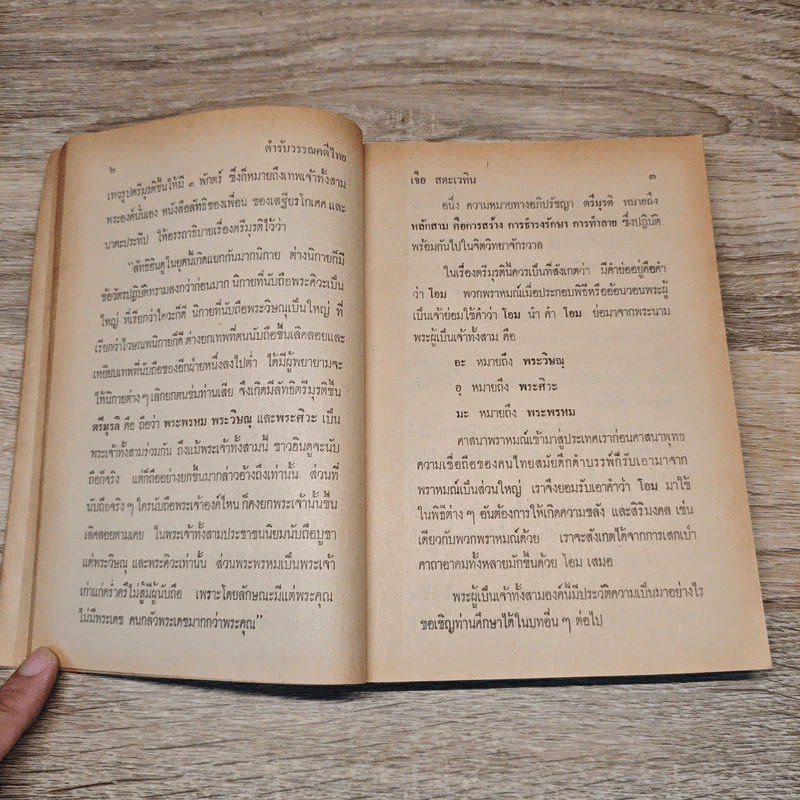 ๒
ตำรับวรรณคดีไทย
เทวรูปตรีมุรติขึ้นให้มี ๓ พักตร์ ซึ่งก็หมายถึงเทพเจ้าทั้งสาม
พระองค์นั้นเอง หนังสือลัทธิของเพื่อน ของเสฐียรโกเศศ และ
นาคะประทีป ให้อรรถาธิบายเรื่องตรีมุรติไว้ว่า
"ลัทธิฮินดูในยุคนี้เกิดแยกกันมากนิกาย ต่างนิกายก็มี
ข้อวัตรปฏิบัติทรามลงกว่าก่อนมาก นิกายที่นับถือพระศิวะเป็น
ใหญ่ ที่เรียกว่าไศวะก็ดี นิกายที่นับถือพระวิษณุเป็นใหญ่ ที่
เรียกว่าไวษณพนิกายก็ดี ต่างยกเทพที่ตนนับถือขึ้นเลิศลอยและ
เหยียบเทพที่นับถือของอีกฝ่ายหนึ่งลงไปต่ำ ได้มีผู้พยายามจะ
ให้นิกายต่าง ๆ เลิกยกตนข่มท่านเสีย จึงเกิดมีลัทธิตรีมุรติขึ้น
ตรีมุรติ คือ ถือว่า พระพรหม พระวิษณุ และพระศิวะ เป็น
พระเจ้าทั้งสามร่วมกัน ถึงแม้พระเจ้าทั้งสามนี้ ชาวฮินดูจะนับ
ถือก็จริง แต่ก็ถืออย่างยกขึ้นมากล่าวอ้างถึงเท่านั้น ส่วนที่
นับถือจริง ๆ ใครนับถือพระเจ้าองค์ไหน ก็คงยกพระเจ้านั้นขึ้น
เลิศลอยตามเคย ในพระเจ้าทั้งสามประชาชนนิยมนับถือบูชา
แต่พระวิษณุ และพระศิวะเท่านั้น ส่วนพระพรหมเป็นพระเจ้า
เก่าแก่คร่ำครึไม่สู้มีผู้นับถือ เพราะโดยลักษณะมีแต่พระคุณ
ไม่มีพระเดช คนกลัวพระเดชมากกว่าพระคุณ"
เจือ สตะเวทิน
๓
อนึ่ง ความหมายทางอภิปรัชญา ตรีมุรติ หมายถึง
หลักสาม คือการสร้าง การธำรงรักษา การทำลาย ซึ่งปฏิบัติ
พร้อมกันไปในจิตวิทยาจักรวาล
ในเรื่องตรีมุรตินี้ควรเป็นที่สังเกตว่า มีคำย่ออยู่คือคำ
ว่า โอม พวกพราหมณ์เมื่อประกอบพิธีหรืออ้อนวอนพระผู้
เป็นเจ้าย่อมใช้คำว่า โอม นำ คำ โอม ย่อมาจากพระนาม
พระผู้เป็นเจ้าทั้งสาม คือ
อะ หมายถึง พระวิษณุ
อุ หมายถึง พระศิวะ
มะ หมายถึง พระพรหม
ศาสนาพราหมณ์เข้ามาสู่ประเทศเราก่อนศาสนาพุทธ
ความเชื่อถือของคนไทยสมัยดึกดำบรรพ์ก็รับเอามาจาก
พราหมณ์เป็นส่วนใหญ่ เราจึงยอมรับเอาคำว่า โอม มาใช้
ในพิธีต่าง ๆ อันต้องการให้เกิดความขลัง และสิริมงคล เช่น
เดียวกับพวกพราหมณ์ด้วย เราจะสังเกตได้จากการเสกเป่า
คาถาอาคมทั้งหลายมักขึ้นด้วย โอม เสมอ
พระผู้เป็นเจ้าทั้งสามองค์นี้มีประวัติความเป็นมาอย่างไร
ขอเชิญท่านศึกษาได้ในบทอื่น ๆ ต่อไป